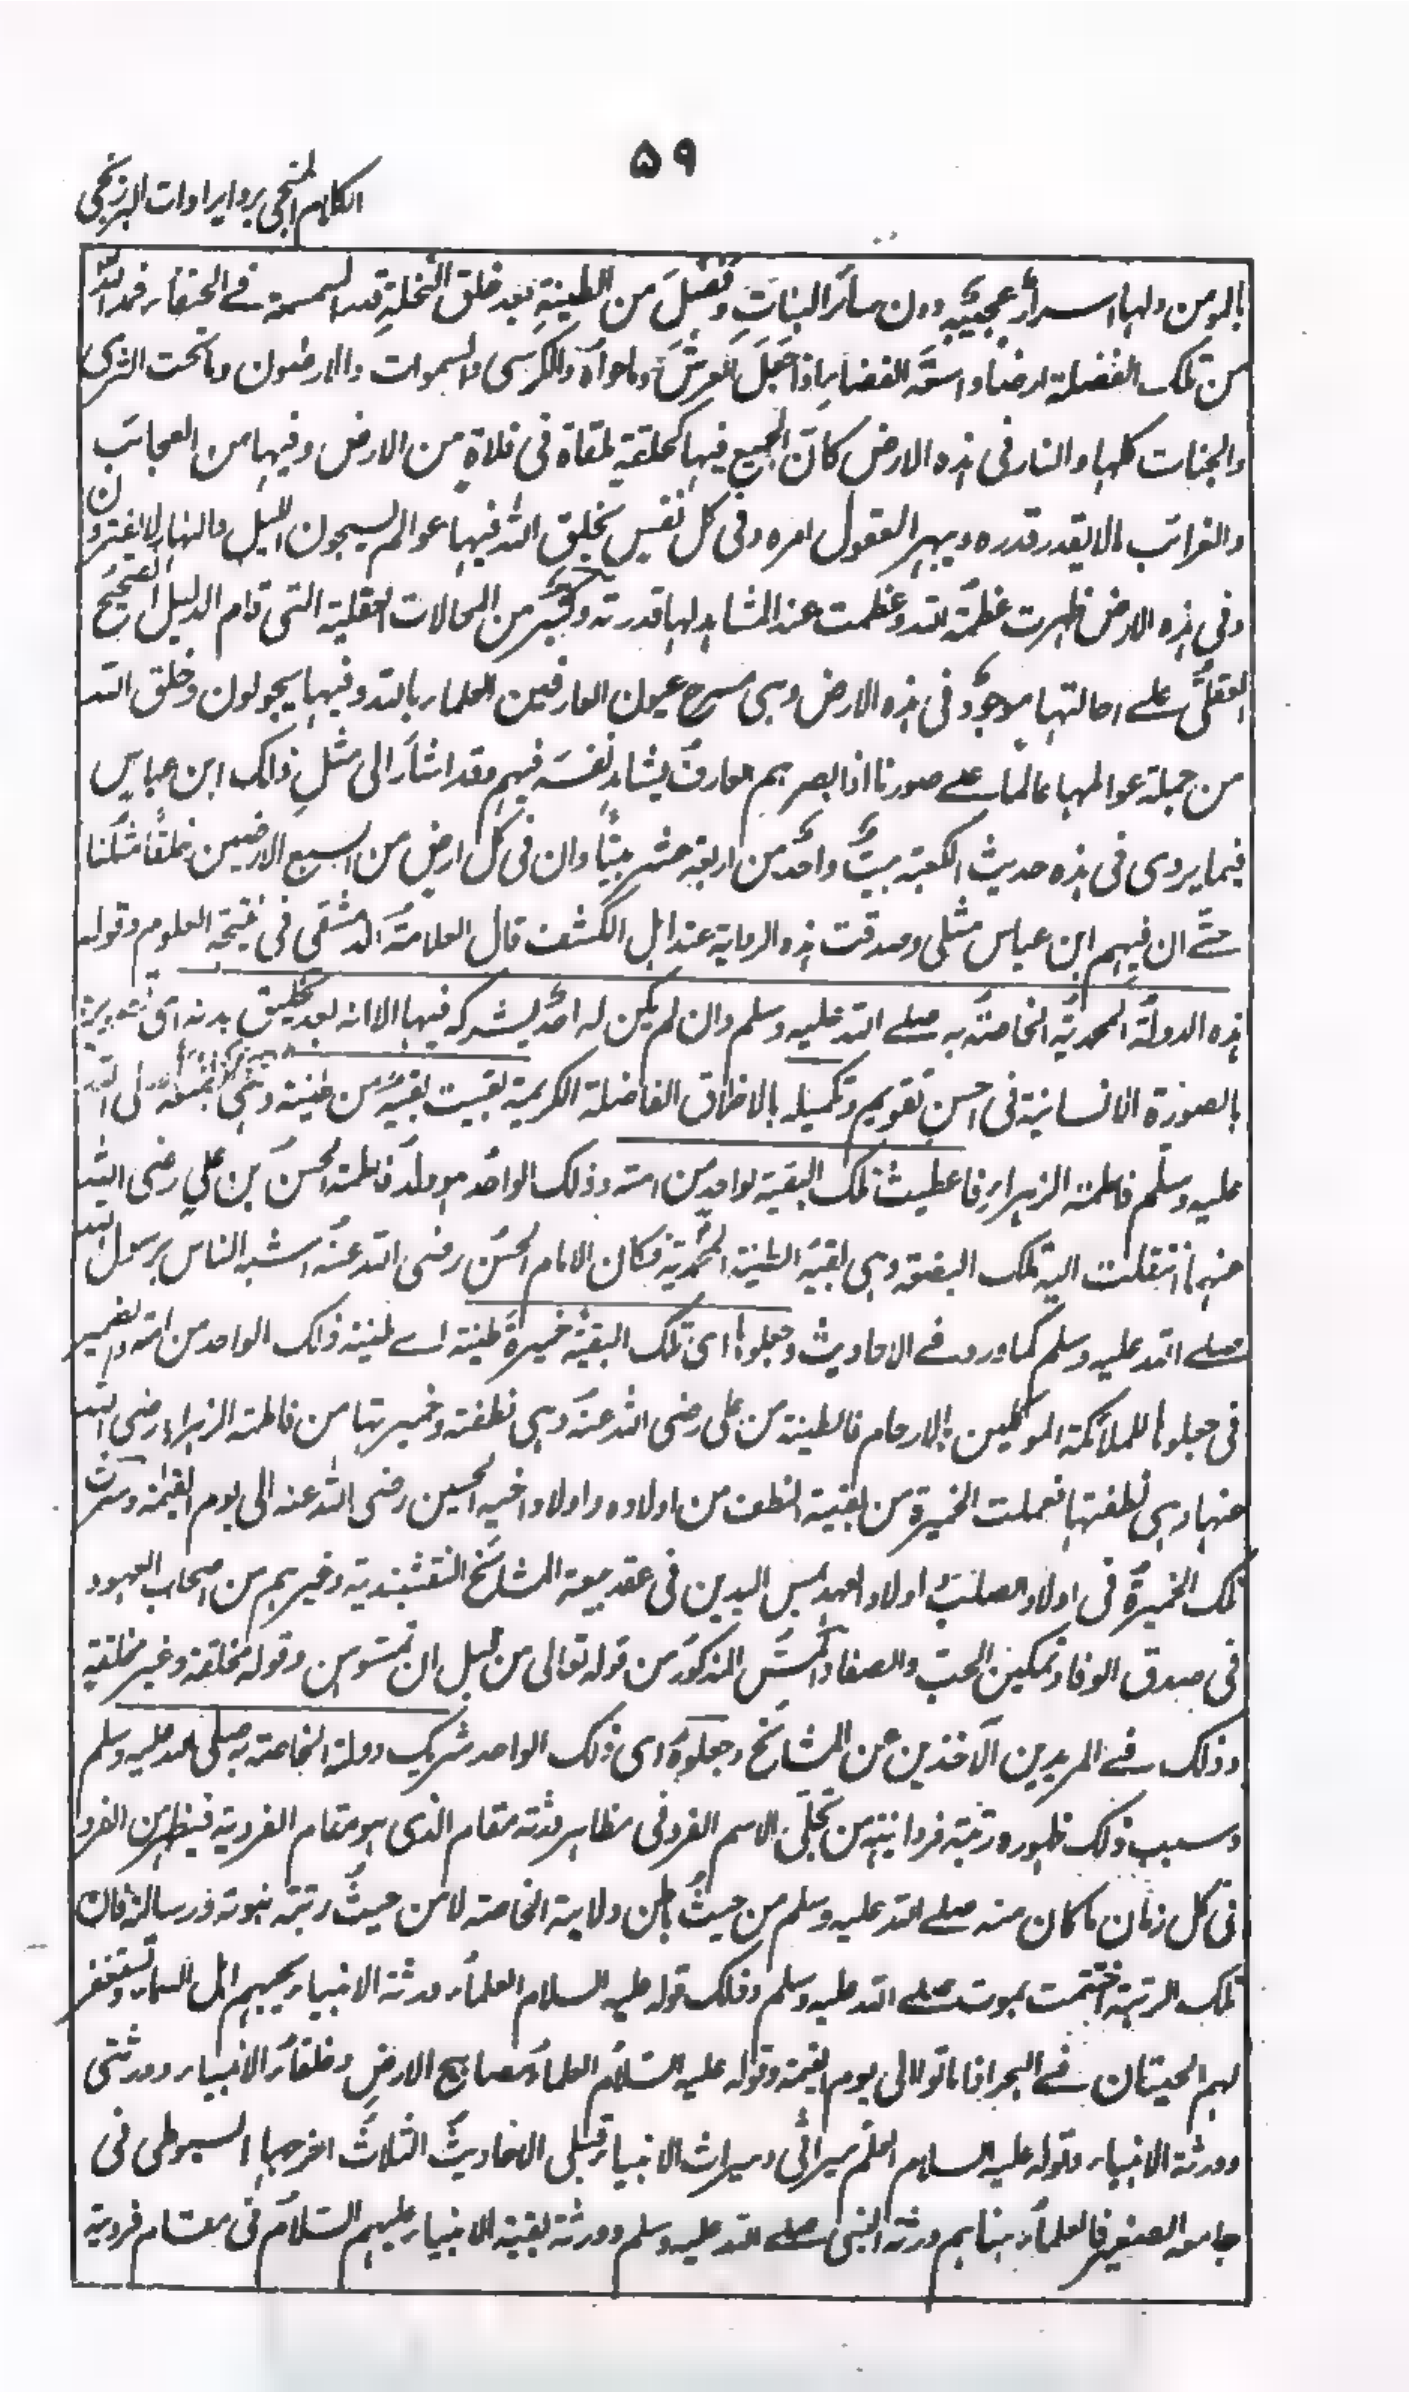 ٥٩
الكلام المنجي برد ايرادات البرزنجي
بالمومن ولها اسرار عجيبة دون سائر النبات وفضل من الطينة بعد خلق النخلة قدر السمسمة في الخفاء فمد الله
من تلك الفضلة ارضا واسعة الفضا اذا جعل العرش وما حواه والكرسي والسموات والارضون وما تحت الثرى
والجنات كلها والنار في هذه الارض كان الجميع فيها كحلقة ملقاة في فلاة من الارض وفيها من العجائب
والغرائب مالا يقدر قدره ويبهر العقول امره وفي كل نفس يخلق الله فيها عوالم يسبحون الليل والنهار لا يفترون
وفي هذه الارض ظهرت عظمة الله وعظمت عند المشاهد لها قدرته وكثير من المحالات العقلية التي قام الدليل الصحيح
العقلي على احالتها موجود في هذه الارض وهي مسرح عيون العارفين العلماء بالله وفيها يجولون وخلق الله
من جملة عوالمها عالما على صورنا اذا ابصرهم العارف يشاهد نفسه فيهم وقد اشار الى مثل ذلك ابن عباس
فيما يروى في هذه حديث الكعبة بيت واحد من اربعة عشر بيتا وان في كل ارض من السبع الارضين خلقا مثلنا
حتى ان فيهم ابن عباس مثلي وصدقت هذه الرواية عند اهل الكشف قال العلامة الدمشقي في نتيجة العلوم وقوله
هذه الدولة المحمدية الخاصة به صلى الله عليه وسلم وان لم يكن له احد يشركه فيها الا انه بعد تخليق بدنه اي تسويته
بالصورة الانسانية في احسن تقويم وتكميله بالاخلاق الفاضلة الكريمة بقيت بقية من طينته وهي بضعة
عليه وسلم فاطمة الزهراء فاعطيت تلك البقية لواحد من امته وذلك الواحد هو ولد فاطمة الحسن بن علي رضي الله
عنهما انتقلت اليه تلك البضعة وهي بقية الطينة المحمدية فكان الامام الحسن رضي الله عنه اشبه الناس برسول الله
صلى الله عليه وسلم كما ورد في الاحاديث وجعلوها اي تلك البقية خميرة طينته اي طينة ذلك الواحد من امته والضمير
في جعلوها للملائكة الموكلين بالارحام فالطينة من علي رضي الله عنه وهي نطفته وخميرتها من فاطمة الزهراء رضي الله
عنها وهي نطفتها فعملت الخميرة من بقية النطف من اولاده واولاد اخيه الحسين رضي الله عنه الى يوم القيمة وسرت
تلك الخميرة في اولاد الصلب اولاد العهد بمس اليدين في عقد بيعة المشائخ النقشبندية وغيرهم من اصحاب العهود
في صدق الوفا وتمكين الحب والصفا والمس المذكور من قوله تعالى من قبل ان تمسوهن وقوله مخلقة وغير مخلقة
وذلك في المريدين الآخذين عن المشائخ وجعلوه اي ذلك الواحد شريك دولة الخاصة به صلى الله عليه وسلم
وسبب ذلك ظهور رتبة فردانيته من تجلي الاسم الفرد في مظاهر ورثة مقام الذي هو مقام الفردية فيظهر من الفرد
في كل زمان ما كان منه صلى الله عليه وسلم من حيث باطن ولاية الخاصة لا من حيث رتبة نبوته ورسالته فان
تلك الرتبة اختتمت بموت صلى الله عليه وسلم وذلك قوله عليه السلام العلماء ورثة الانبياء يحبهم اهل السماء ويستغفر
لهم الحيتان في البحر اذا ماتوا الى يوم القيمة وقوله عليه السلام العلماء مصابيح الارض وخلفاء الانبياء وورثتي
وورثة الانبياء وقوله عليه السلام العلم ميراثي وميراث الانبياء قبلي الاحاديث الثلاث اخرجها السيوطي في
جامعه الصغير فالعلماء هنا هم ورثة النبي صلى الله عليه وسلم وورثة بقية الانبياء عليهم السلام في مقام فردية